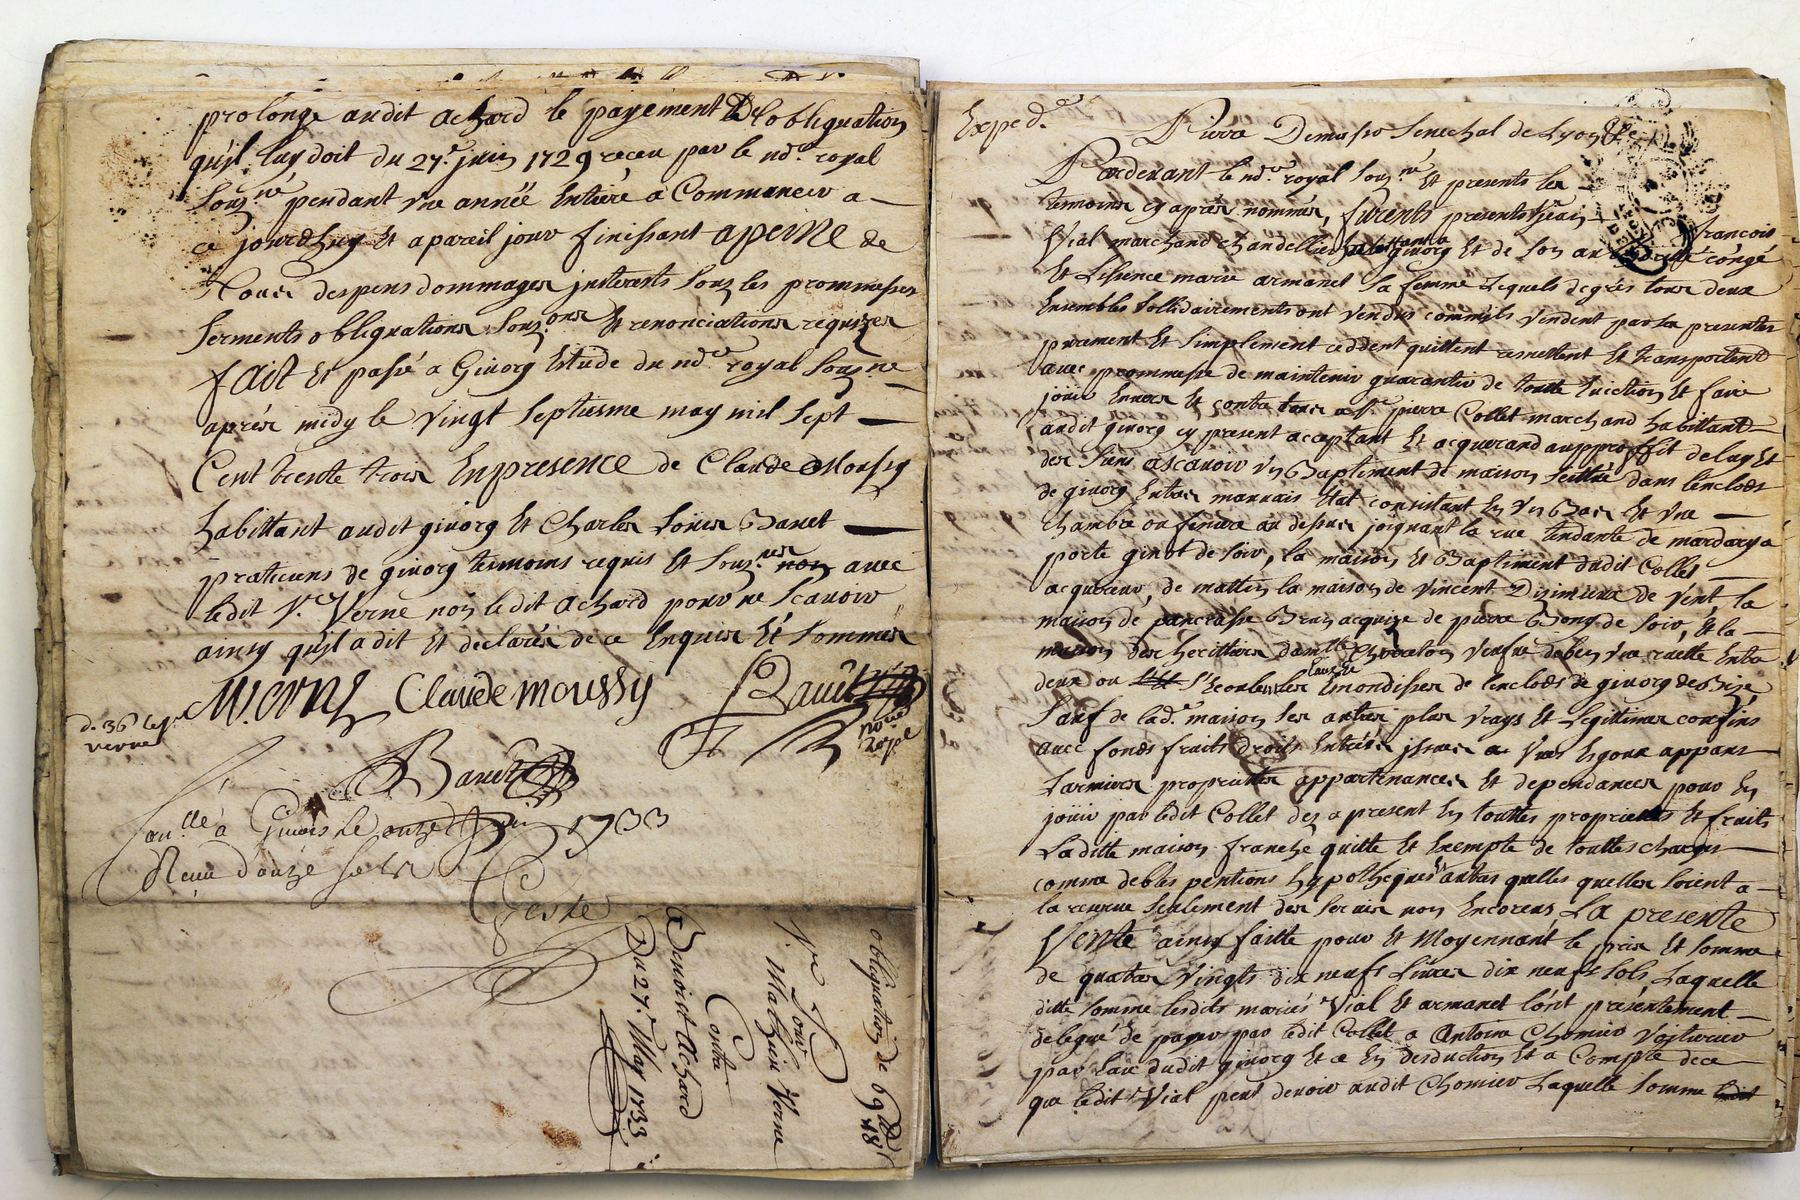 prolonge audit achard le payement De lobligation
qu'il luy doit du 27e juin 1729 receu par le nore royal
souzné pendant vne année Entiere a Commancer a
ce jourdhuy Et a pareil jour finissant apeine de
Tous despens dommages jnterests Souz les prommesses
serments obligations souzons Et renonciations requizes
fait Et passé a Givorg Estude du nore royal souzné
après midy le vingt septiesme may mil sept
Cent trente trois Enpresence de Claude Moussy
habittant audit givorg Et Charles Loüis Banet
praticiens de givorg tesmoins requis Et souz.nes avec
ledit Sr Verne non ledit achard pour ne Scavoir
ainsy qu'il a dit Et declaré de ce Enquis Et sommer
M. verne Claude moussy Banet
verne
nore royal
Banet
a Givors le onze Juin 1733
Receu douze sols
obligation de 69 ll 18 s
Sr
Pour
Mathieu Verne
Contre
Benoist Achard
Du 27e May 1733
Exped.e
Pierre Dumas Senechal de Lyon
Pardevant le nore royal souz.né Et presents les
temoins cy après nommés, furents presents Jean François
Vial marchand chandellier habittant a givorg Et de son authorité congé
Et Lisence marie armanet sa femme Lequels de grés tous deux
Ensembles sollidairements ont vendus comm'ils vendent par la presentes
purement Et simplement ceddent quittent remettent Et transportent
avec prommesse de maintenir guarantir de toutte Eviction Et faire
jouir Envers Et contre tous a Sr pierre Collet marchand habittant
audit givorg cy present acceptant Et acquerand aupproffit de luy Et
des siens ascavoir vn Baptiment de maison scittué dans lenclods
de givorg Entres mauvais Etat consistant En vn Bas Et vne
chambre ou feniere au dessus joignant la rue tendante de mardary a
porte ginot de soir, la maison Et Baptiment dudit Collet
acquereur, de mattin la maison de vincent Dizimieux de vent la
maison de pancrasse Brun acquize de pierre Bong de soir, Et la
maison des heritiers dam.lle Chovelon veufve dabeÿ vne ruette Entre
deux ou s'ecoulent les Emondisses de lenclods de givorg de Bize
sauf de lad.e maison ses autres plus vrays Et Legittimes confins
avec fonds fraits droits Entrées jssues Vues Egoux appans
Larmiers proprietes appartenances Et dependances pour En
joüir par ledit Collet dez a present En touttes proprietes Et fraits
Laditte maison franche quitte Et Exempte de touttes charges
comme debtes pentions hypotheques autres quelles quelles soient a
la reserve seulement des servis non Encorus La presente
Vente ainsy faitte pour Et Moyennant le prix Et somme
de quatre vingts dix neufs Livres dix neufs sols Laquelle
ditte somme lesdits mariés Vial Et armanet l'ont presentement
delegué de payer par ledit Collet a Antoine Chomier voiturier
par Eau dudit givorg Et ce En desduction Et a Compte de ce
que ledit Sr Vial peut devoir audit Chomier Laquelle somme